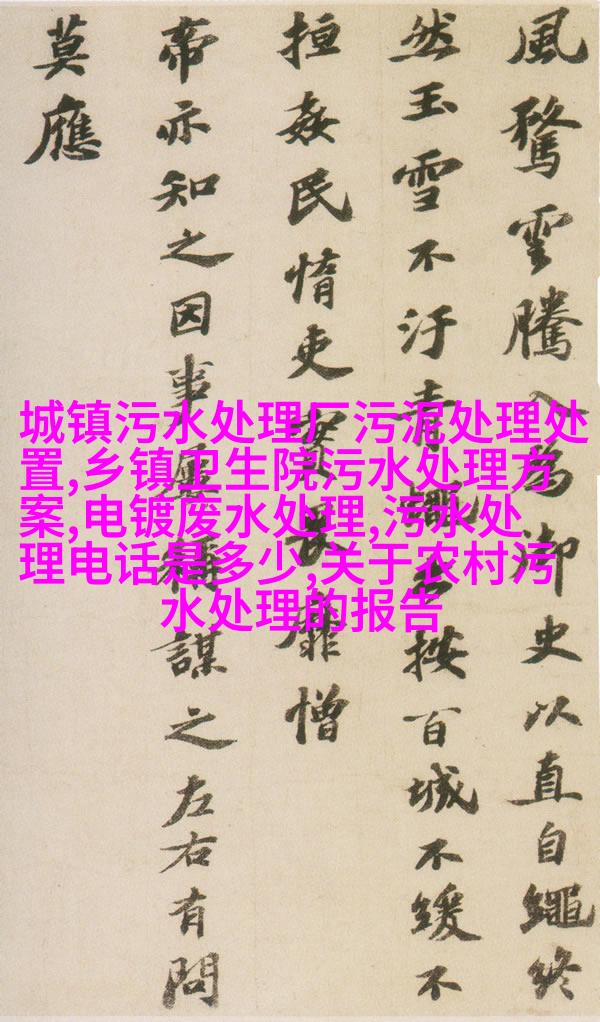 風騖雲騰入為御史以直自繩終
然玉雪不汙青蠅出按百城不緩不
搄姦民惰吏實畏靡憎
帝亦知之因事屢稱謀之左右有問
莫應
城镇污水处理厂污泥处理处
置,乡镇卫生院污水处理方
案,电镀废水处理,污水处
理电话是多少,关于农村污
水处理的报告